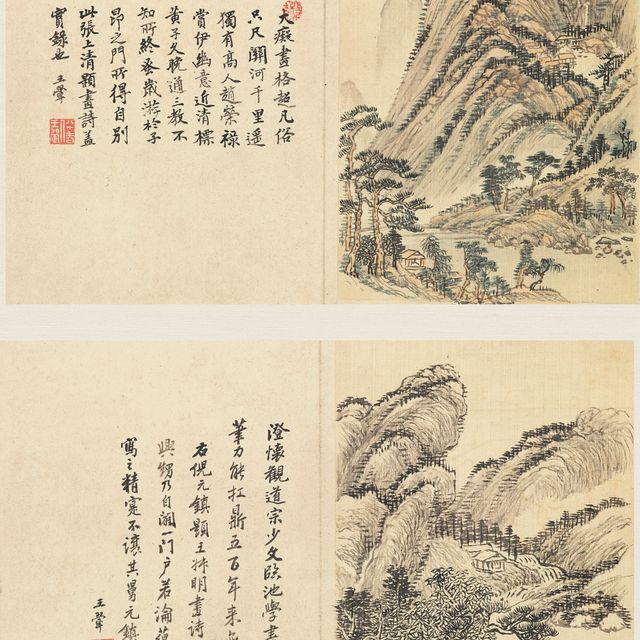 大癡畫格超凡俗
只尺關河千里遥
獨有高人趙榮祿
賞伊幽意近清標
黃子久晚通三教不
知所終蚤歲游於子
昂之門所得自別
此張上清題畫詩蓋
實錄也 王
澄懷觀道宗少文臨池學書
筆力能扛鼎五百年來
右倪元鎮題王叔明畫詩
興甥乃自闢一門户若論
寫之精寔不讓其舅元鎮
王